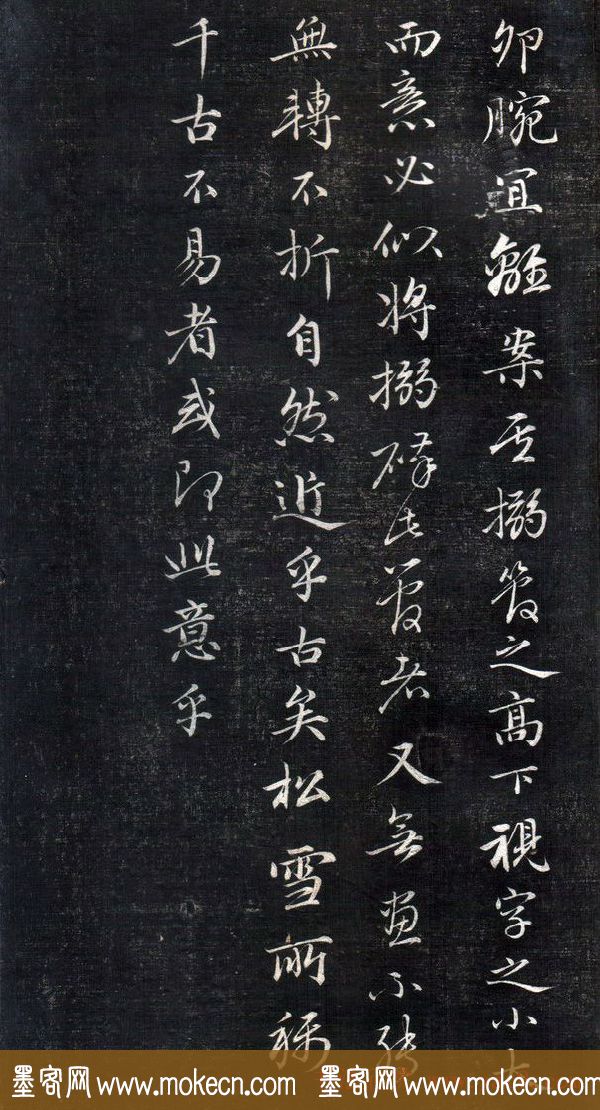 卯腕宜離案其搦管之高下視字之小大
而意必似将搦碎此管者又無畫不轉
無轉不折自然近乎古矣松雪所稱
千古不易者或即此意乎
墨客网 www.mokecn.com 墨客网 www.mokecn.com